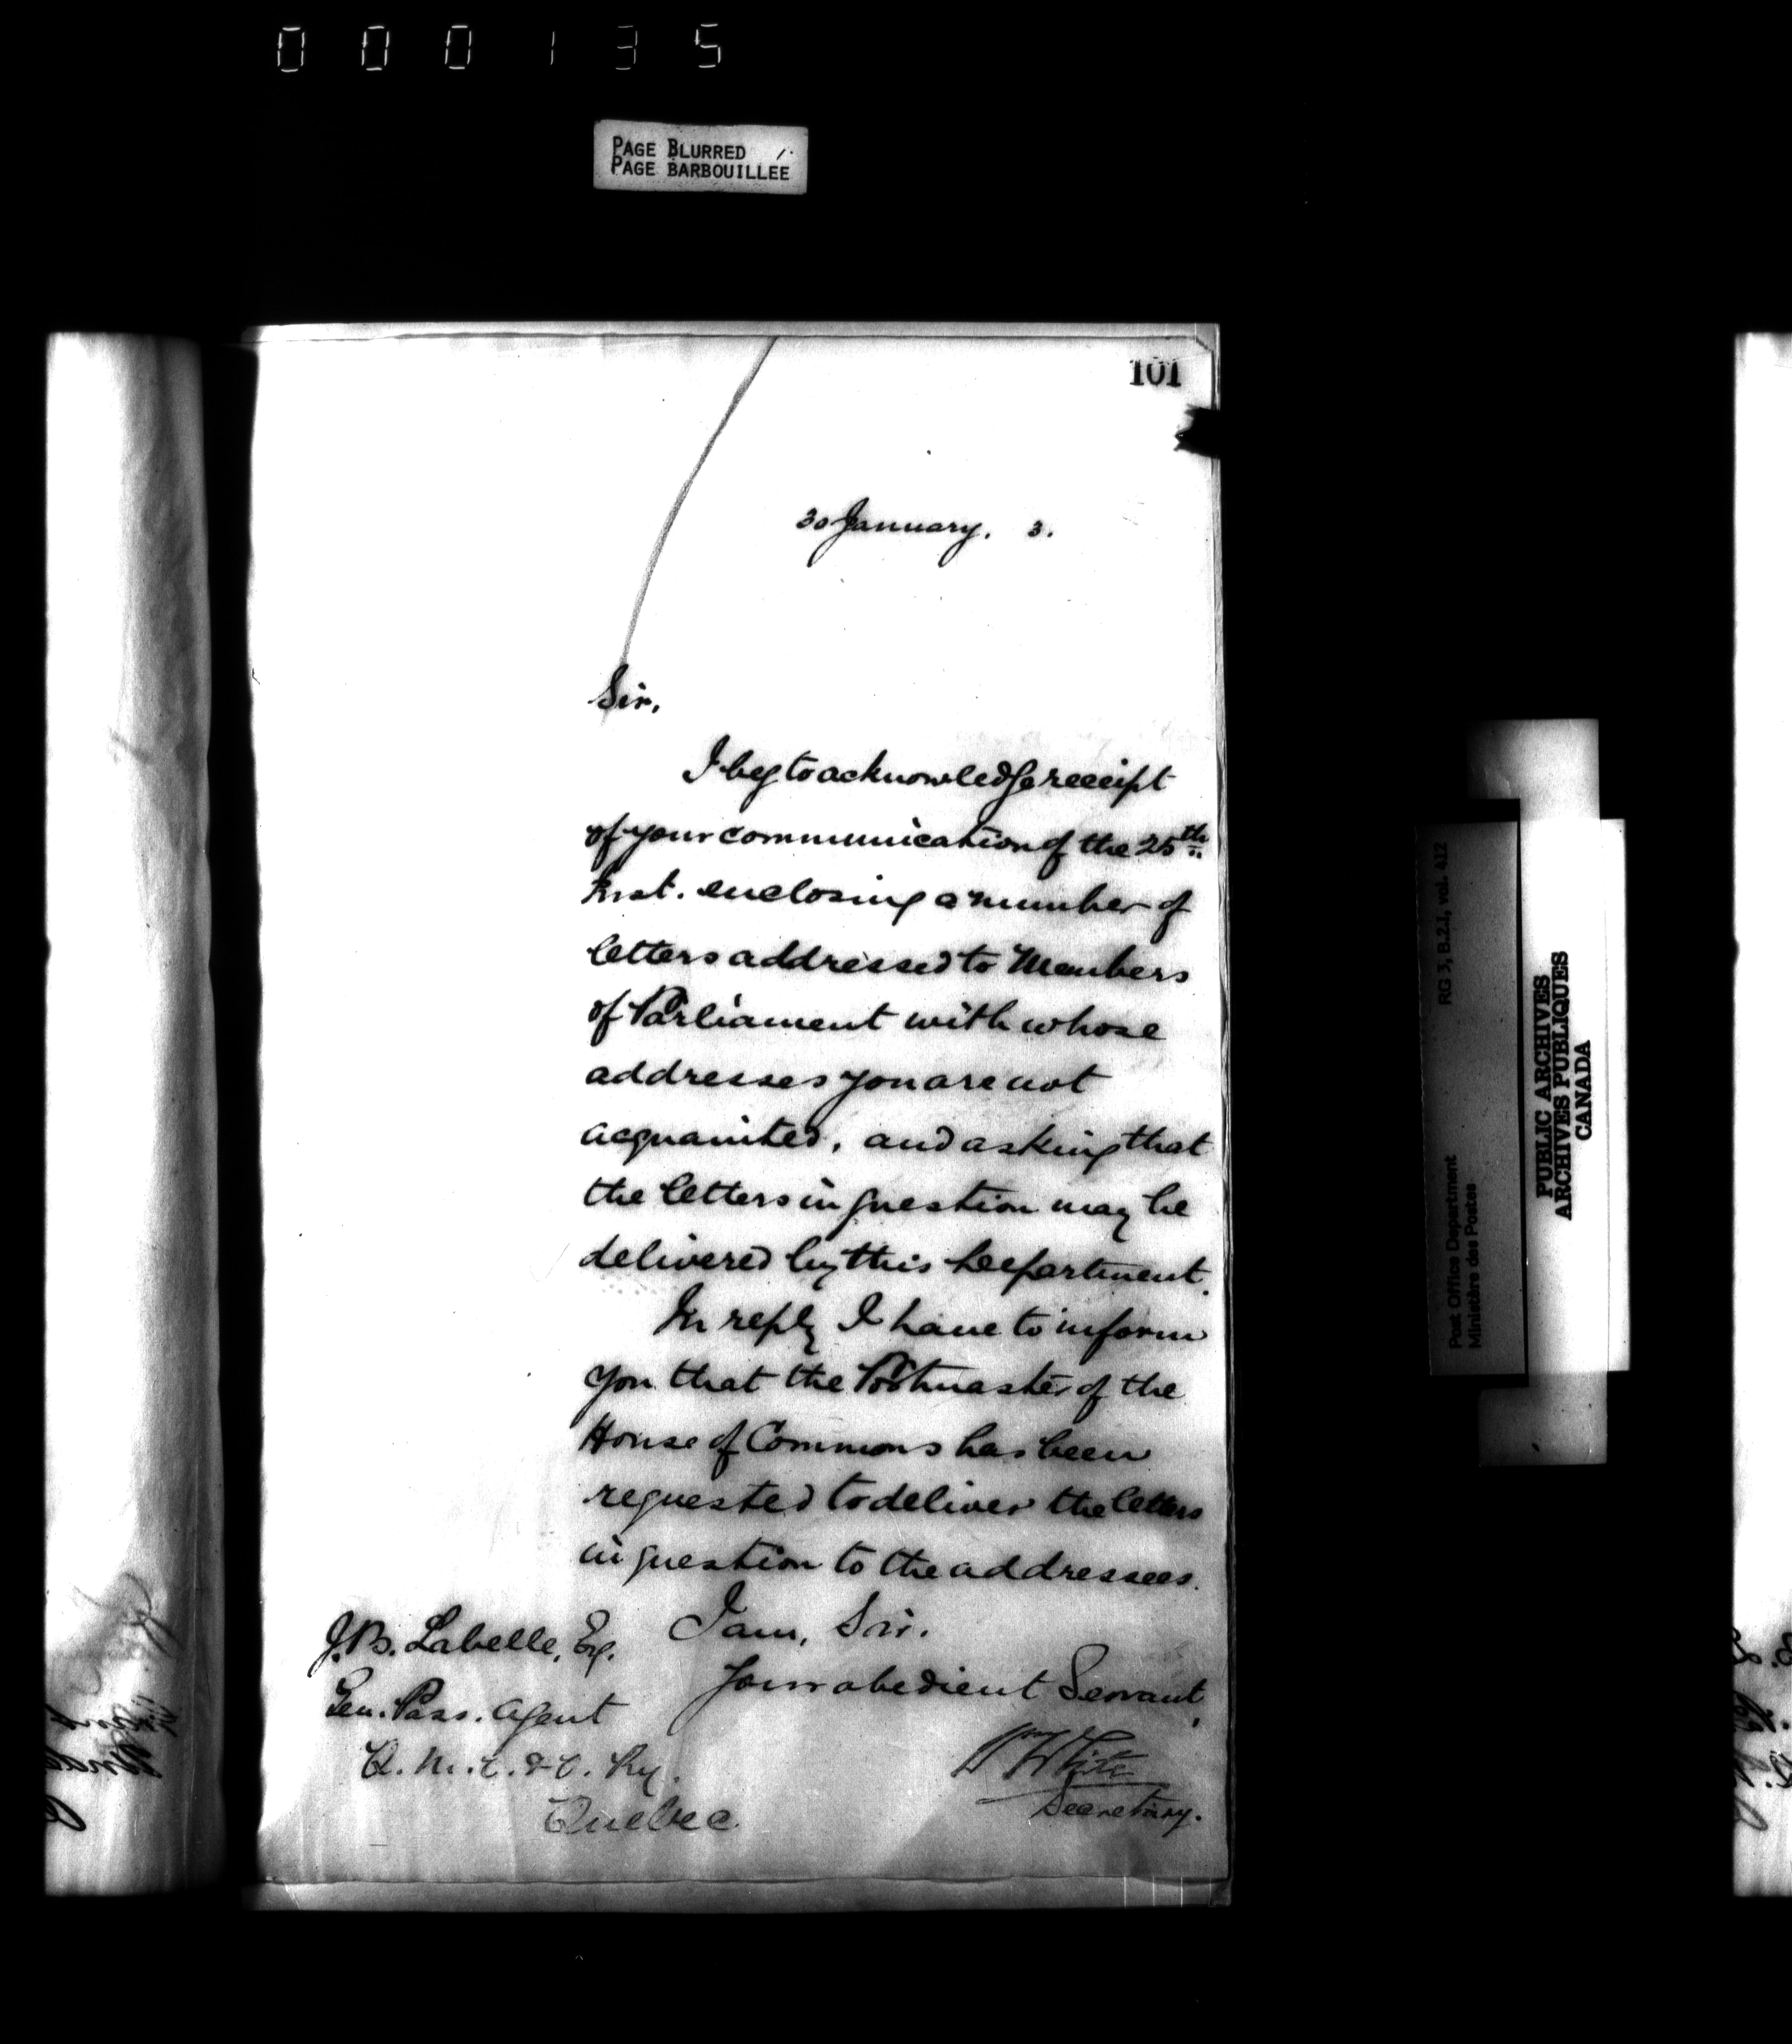 000135
PAGE BLURRED
PAGE BARBOUILLÉE
101
30 January. 3.
Sir,
I beg to acknowledge receipt
of your communication of the 25th
Inst. enclosing a number of
letters addressed to Members
of Parliament with whose
addresses you are not
acquainted, and asking that
the letters in question may be
delivered by this Department.
In reply I have to inform
you that the Postmaster of the
House of Commons has been
requested to deliver the letters
in question to the addressees.
I am, Sir.
Your obedient Servant,
Wm White
Secretary.
J.B. Labelle, Esq.
Gen. Pass. Agent
Q. M. O. & O. Ry.
Quebec
RG 3, B.2.1, vol. 412
Post Office Department
Ministère des Postes
PUBLIC ARCHIVES
ARCHIVES PUBLIQUES
CANADA